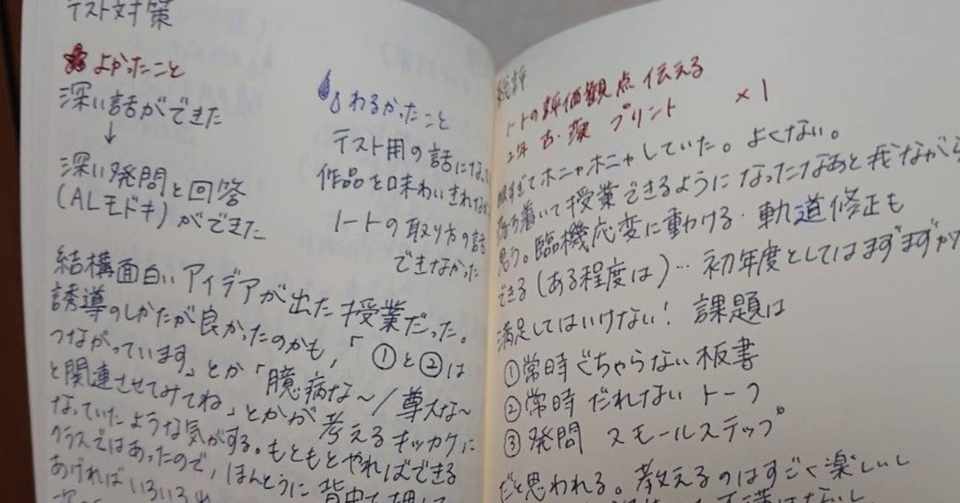 テスト対策
よかったこと
深い話ができた
↓
深い発問と回答
(ALモドキ)ができた
わるかったこと
テスト用の話にな
作品を味わいきれな
ノートの取り方の話
できなかった
結構面白いアイデアが出た授業だった。
誘導のしかたが良かったのかも,「①と②は
つながっています」とか「臆病な～/尊大な～
と関連させてみてね」とかが考えるキッカケに
なっていたような気がする。もともとやればできる
クラスではあったので,ほんとうに背中を押して
あげればいろいろ
総評
ノートの評価観点 伝える
プリント ×1
眠すぎてホニャホニャしていた。よくない。
落ち着いて授業できるようになったなあと我ながら
思う。臨機応変に動ける・軌道修正も
できる(ある程度は)…初年度としてはまずまずか
満足してはいけない!課題は
①常時ごちゃらない板書
②常時だれないトーク
③発問 スモールステップ
だと思われる。教えるのはすごく楽しいし